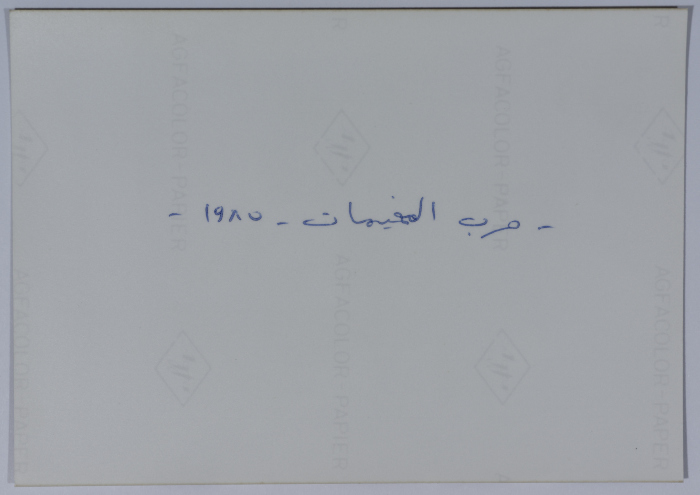 - حرب المخيمات - ١٩٨٥ -
AGFACOLOR-PAPIER
AGFACOLOR-PAPIER
AGFACOLOR-PAPIER
AGFACOLOR-PAPIER
AGFACOLOR-PAPIER